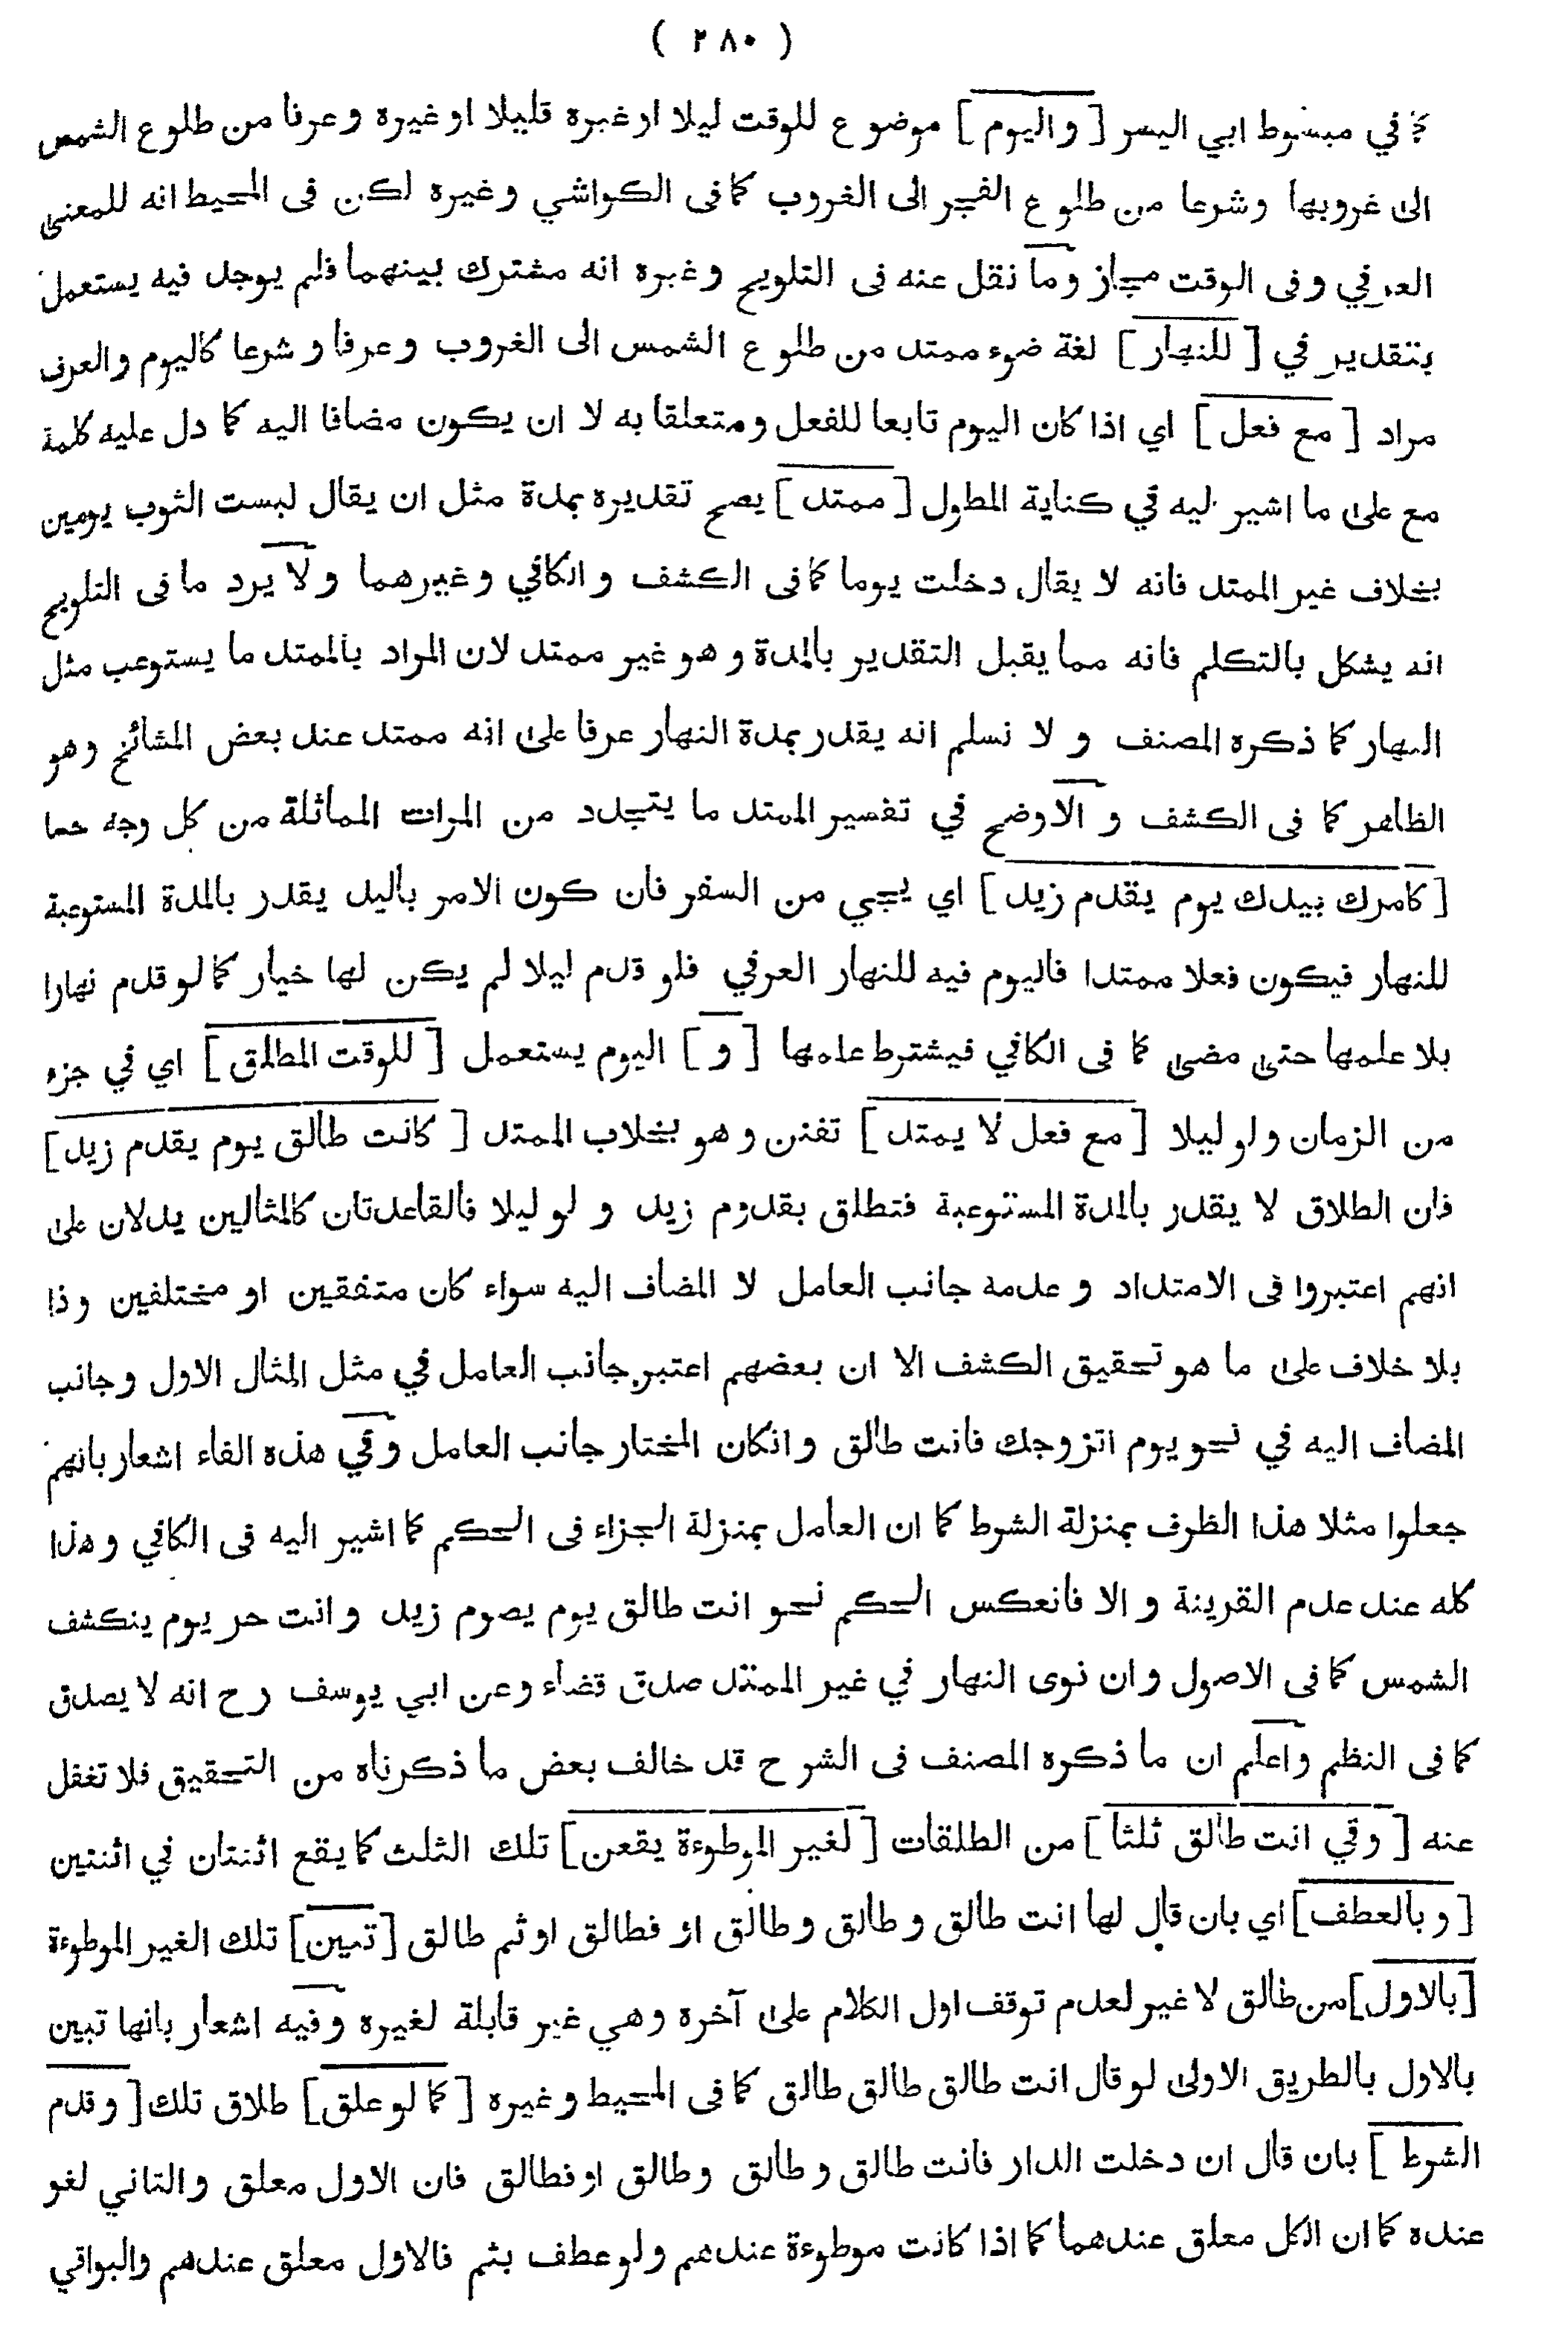 ( ٢٨٠ )
كما في مبسوط ابي اليسر [ واليوم ] موضوع للوقت ليلا اوغيره قليلا اوغيره وعرفا من طلوع الشمس
الى غروبها وشرعا من طلوع الفجر الى الغروب كما فى الكواشي وغيره لكن فى المحيط انه للمعنى
العرفي وفى الوقت مجاز وما نقل عنه فى التلويح وغيره انه مشترك بينهما فلم يوجد فيه يستعمل
بتقدير في [ للنهار ] لغة ضوء ممتد من طلوع الشمس الى الغروب وعرفا وشرعا كاليوم والعرف
مراد [ مع فعل ] اي اذا كان اليوم تابعا للفعل ومتعلقا به لا ان يكون مضافا اليه كما دل عليه كلمة
مع على ما اشير اليه في كناية المطول [ ممتد ] يصح تقديره بمدة مثل ان يقال لبست الثوب يومين
بخلاف غير الممتد فانه لا يقال دخلت يوما كما فى الكشف والكافي وغيرهما ولا يرد ما فى التلويح
انه يشكل بالتكلم فانه مما يقبل التقدير بالمدة وهو غير ممتد لان المراد بالممتد ما يستوعب مثل
النهار كما ذكره المصنف ولا نسلم انه يقدر بمدة النهار عرفا على انه ممتد عند بعض المشائخ وهو
الظاهر كما فى الكشف والاوضح في تفسير الممتد ما يتجدد من المرات المماثلة من كل وجه حسا
[ كامرك بيدك يوم يقدم زيد ] اي يجي من السفر فان كون الامر باليد يقدر بالمدة المستوعبة
للنهار فيكون فعلا ممتدا فاليوم فيه للنهار العرفي فلو قدم ليلا لم يكن لها خيار كما لو قدم نهارا
بلا علمها حتى مضى كما فى الكافي فيشترط علمها [ و ] اليوم يستعمل [ للوقت المطلق ] اي في جزء
من الزمان ولو ليلا [ مع فعل لا يمتد ] تفنن وهو بخلاب الممتد [ كانت طالق يوم يقدم زيد ]
فان الطلاق لا يقدر بالمدة المستوعبة فتطلق بقدوم زيد ولو ليلا فالقاعدتان كالمثالين يدلان على
انهم اعتبروا فى الامتداد وعدمه جانب العامل لا المضاف اليه سواء كان متفقين او مختلفين وذا
بلا خلاف على ما هو تحقيق الكشف الا ان بعضهم اعتبر جانب العامل في مثل المثال الاول وجانب
المضاف اليه في نحو يوم اتزوجك فانت طالق وانكان المختار جانب العامل وفي هذه الفاء اشعار بانهم
جعلوا مثلا هذا الظرف بمنزلة الشرط كما ان العامل بمنزلة الجزاء فى الحكم كما اشير اليه فى الكافي وهذا
كله عند عدم القرينة والا فانعكس الحكم نحو انت طالق يوم يصوم زيد وانت حر يوم ينكشف
الشمس كما فى الاصول وان نوى النهار في غير الممتد صدق قضاء وعن ابي يوسف رح انه لا يصدق
كما فى النظم واعلم ان ما ذكره المصنف فى الشرح قد خالف بعض ما ذكرناه من التحقيق فلا تغفل
عنه [ وفي انت طالق ثلثا ] من الطلقات [ لغير الموطوءة يقعن ] تلك الثلث كما يقع اثنتان في اثنتين
[ وبالعطف ] اي بان قال لها انت طالق وطالق وطالق او فطالق اوثم طالق [ تبين ] تلك الغير الموطوءة
[ بالاول ] من طالق لا غير لعدم توقف اول الكلام على آخره وهي غير قابلة لغيره وفيه اشعار بانها تبين
بالاول بالطريق الاولى لو قال انت طالق طالق طالق كما فى المحيط وغيره [ كما لو علق ] طلاق تلك [ وقدم
الشرط ] بان قال ان دخلت الدار فانت طالق وطالق وطالق اوفطالق فان الاول معلق والثاني لغو
عنده كما ان الكل معلق عندهما كما اذا كانت موطوءة عندهم ولو عطف بثم فالاول معلق عندهم والبواقي